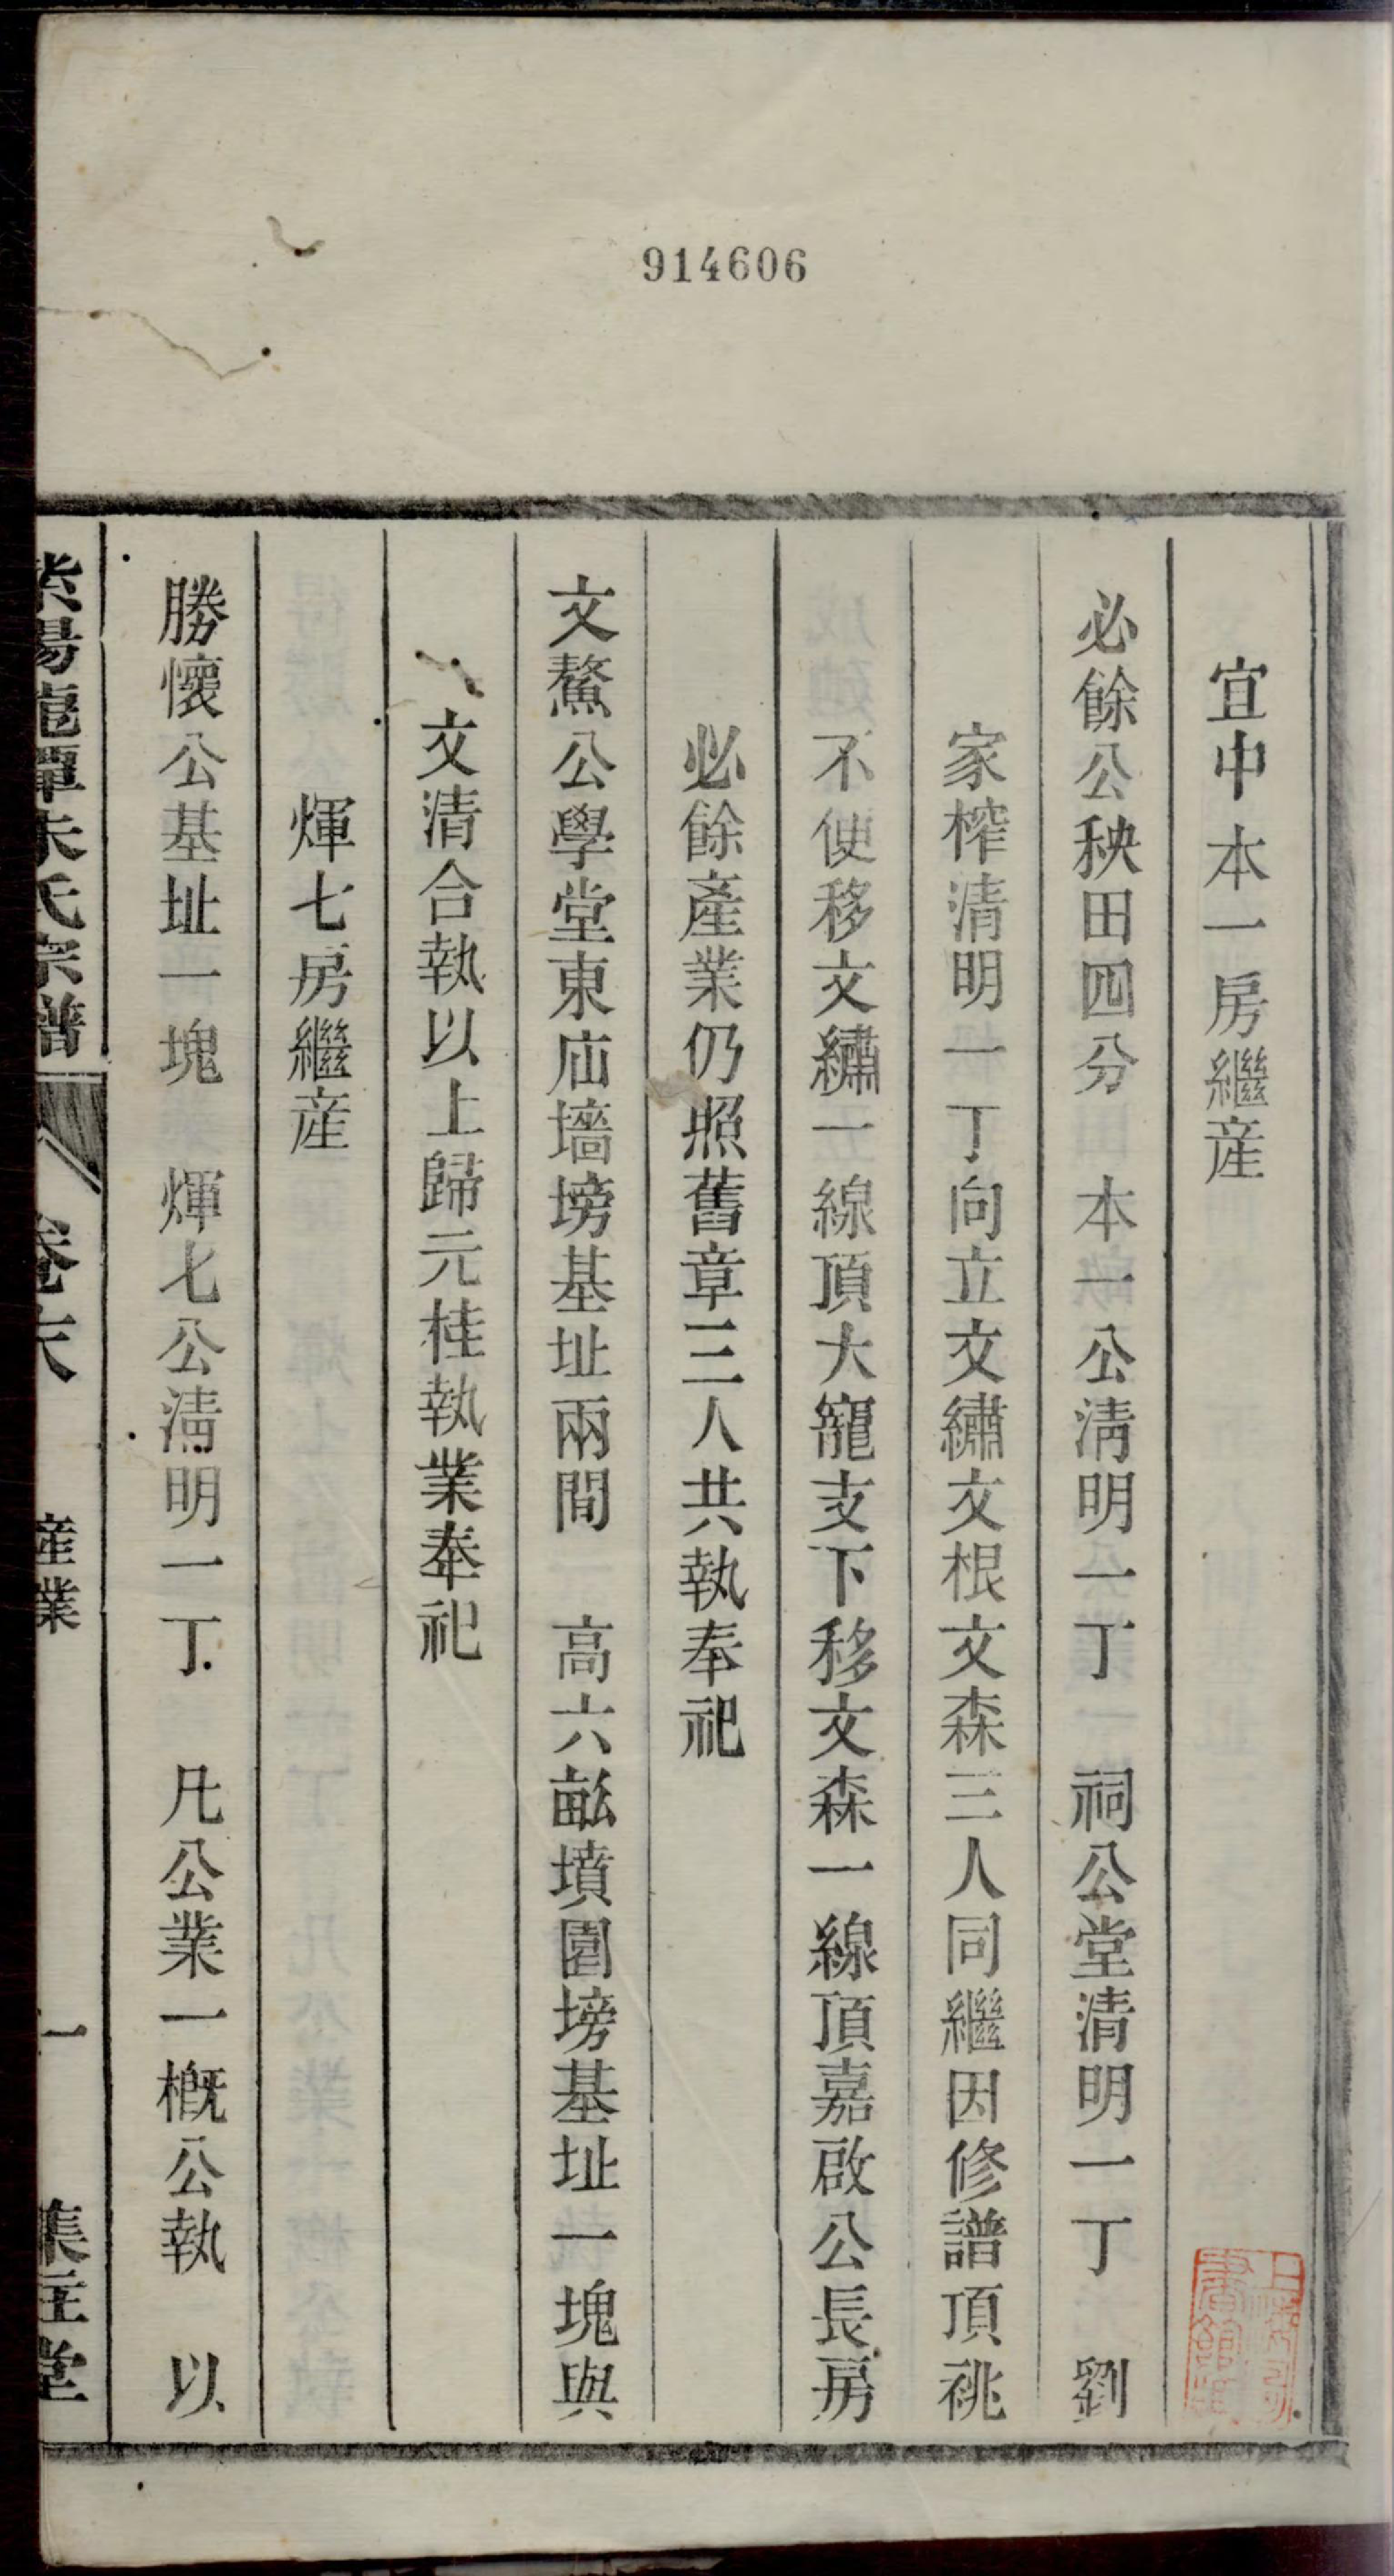 914606
宜中本一房繼産
必餘公秧田四分　本一公淸明一丁　祠公堂清明一丁　劉
家榨清明一丁向立文繡文根文森三人同繼因修譜頂祧
不便移文繡一線頂大寵支下移文森一線頂嘉啟公長房
必餘產業仍照舊章三人共執奉祀
文鰲公學堂東庙墻塝基址兩間　高六畝墳園塝基址一塊與
文清合執以上歸元桂執業奉祀
煇七房繼産
勝懷公基址一塊　煇七公清明一丁　凡公業一概公執　以
紫陽龍潭朱氏宗譜　卷末　産業　一　集註堂